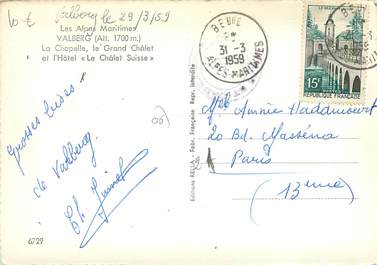 10 € Valberg le 29/3/59
Les Alpes Maritimes
VALBERG (Alt. 1700 m.)
La Chapelle, le Grand Châlet
et l'Hôtel « Le Châlet Suisse »
Grosses bises
de Valberg
6729
Editions RELLA - Fabr. Française Repr. Interdite
BEUIL
31-3
1959
ALPES-MARITIMES
15F
REPUBLIQUE FRANÇAISE
Melle Annie
20 Bd. Masséna
Paris
(13eme)